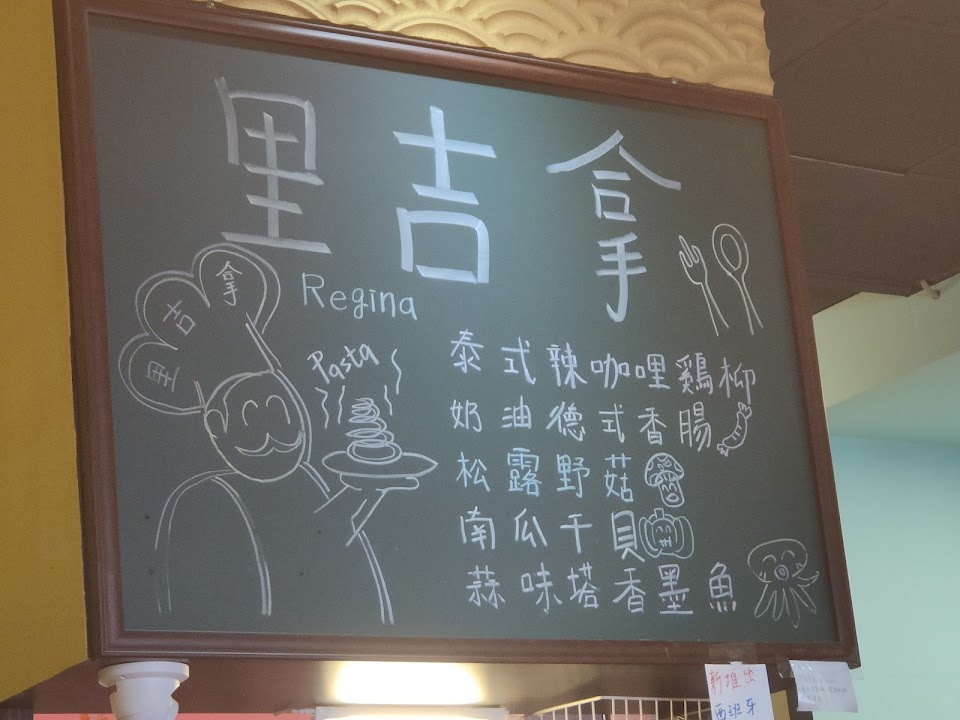 里吉拿
Regina
里吉拿
Pasta
泰式辣咖哩鷄柳
奶油德式香腸
松露野菇
南瓜干貝
蒜味塔香墨魚
新推出
西班牙